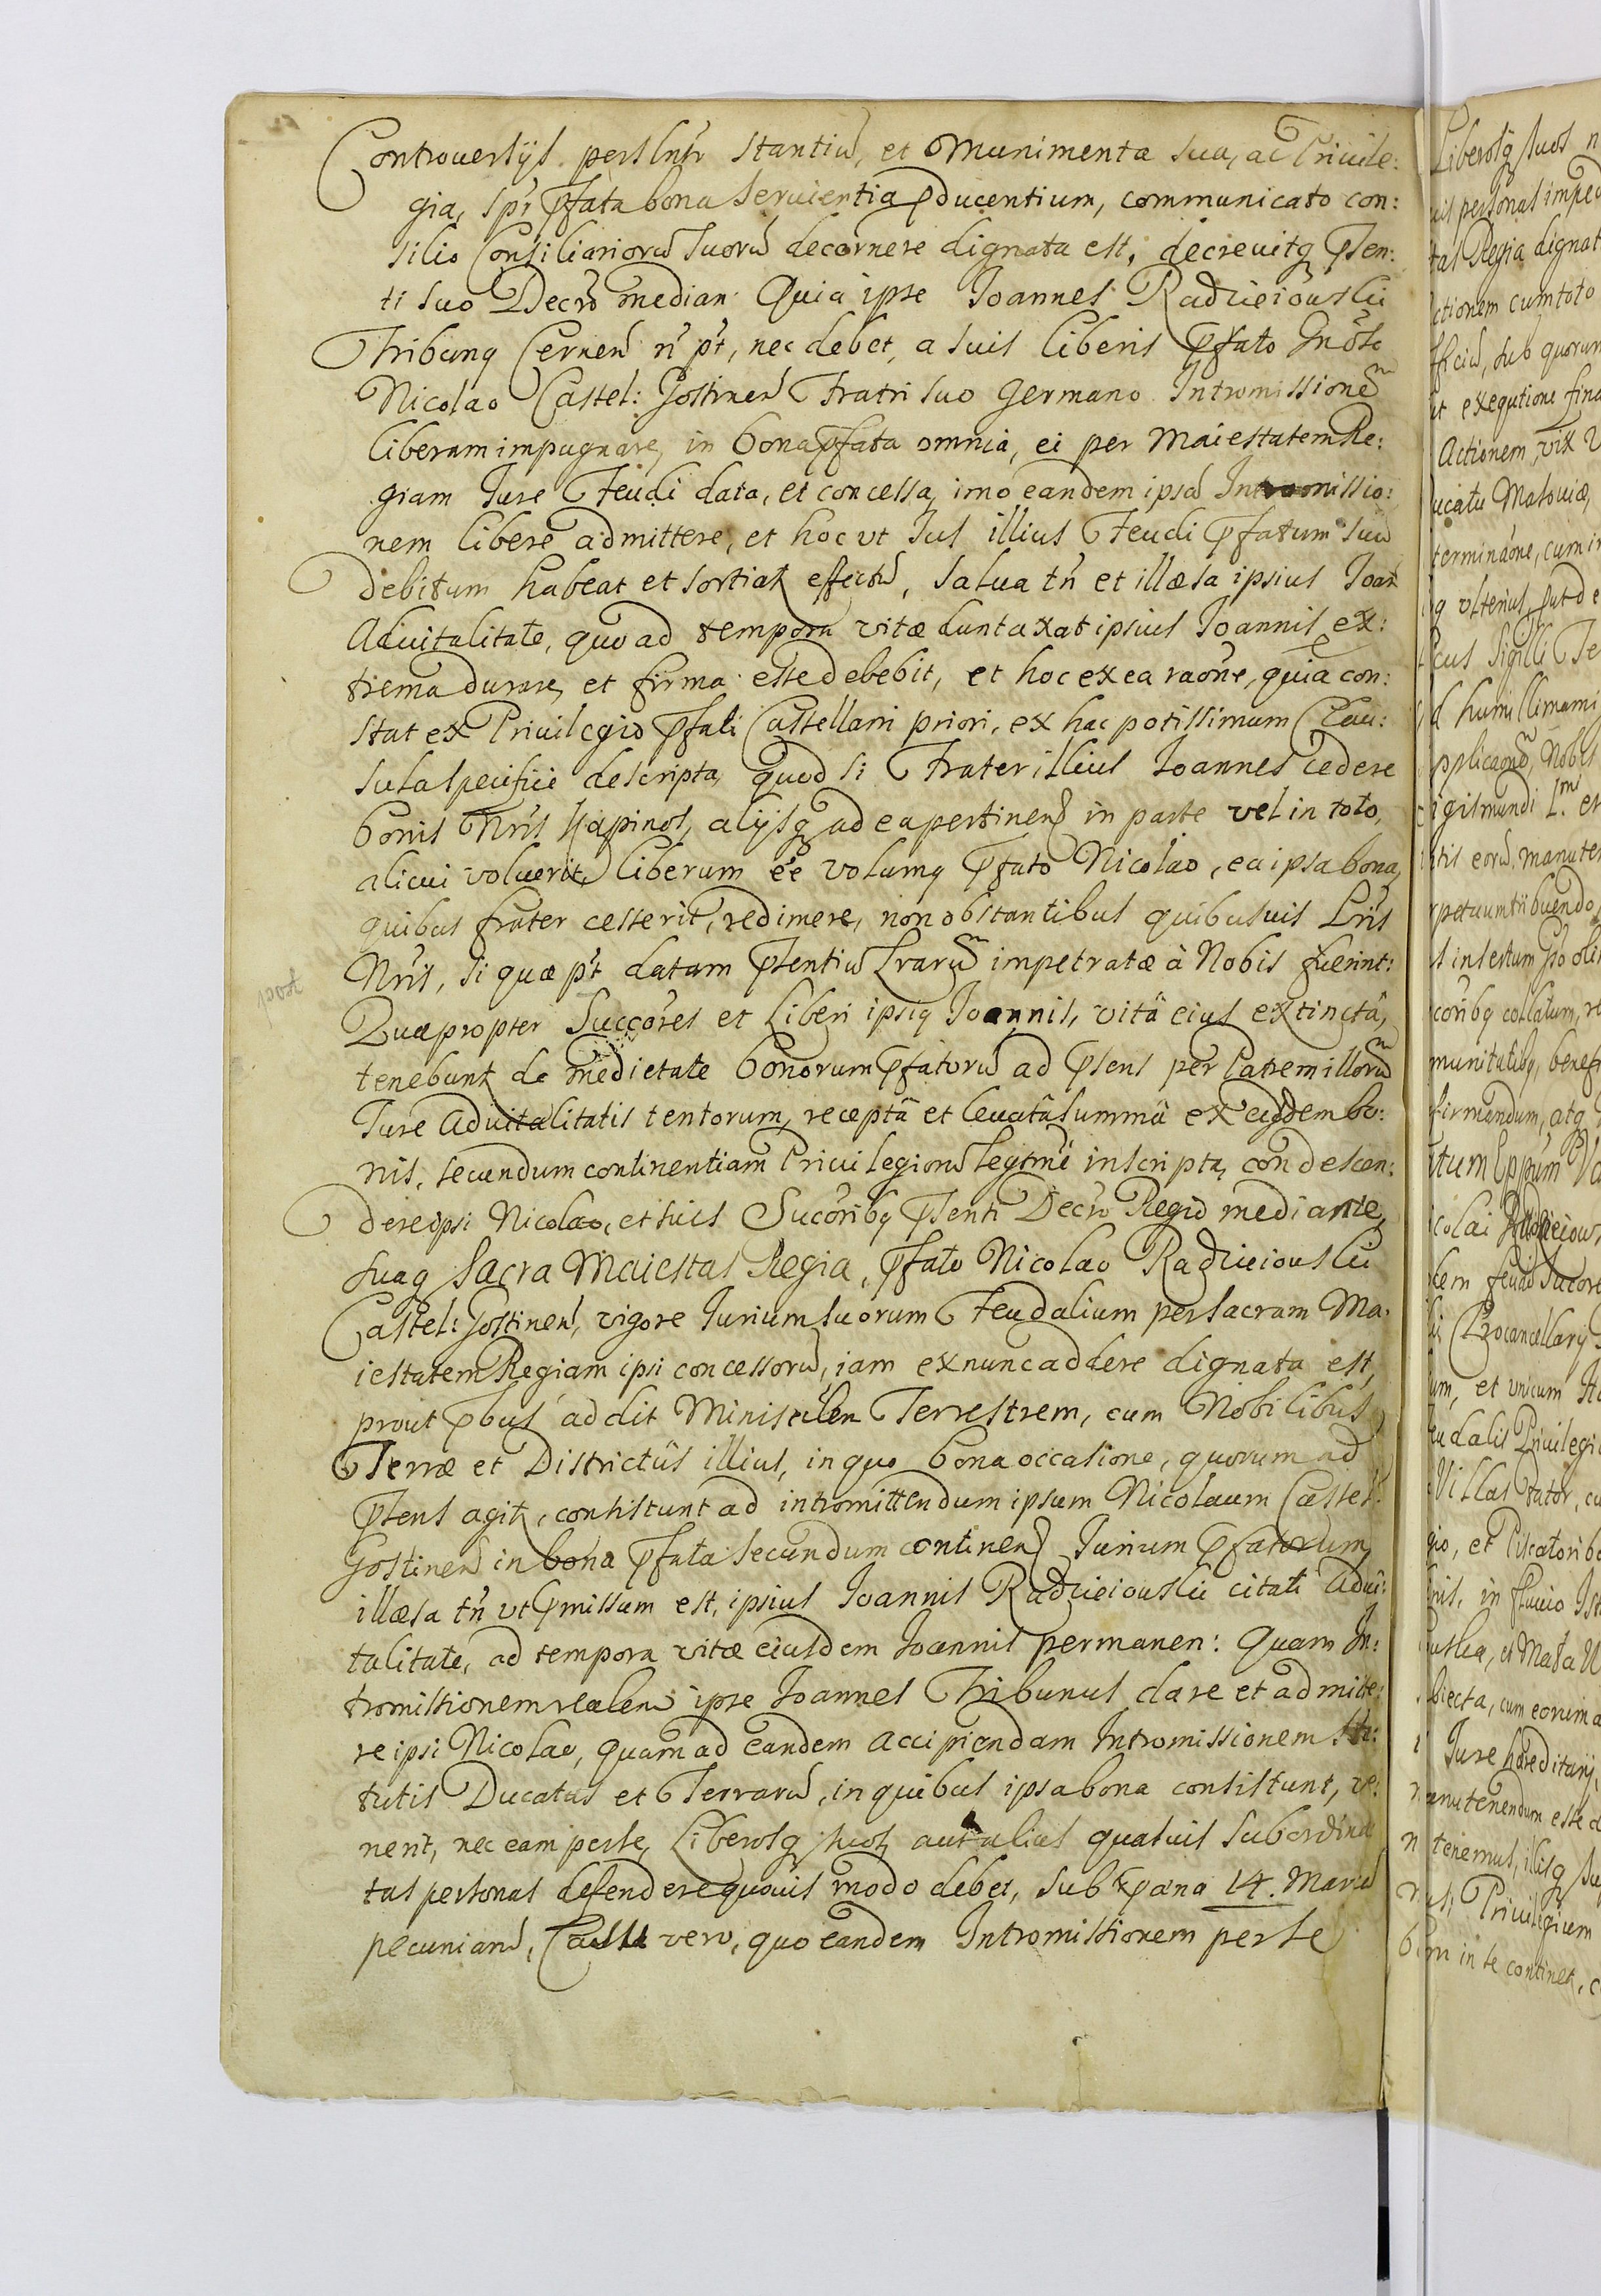 Controuersijs persłntr stantiū, et Munimenta sua, ac Priuile:
gia, spr p̄fata bona seruientia p̱ducentium, communicato con:
silio Consiliariorū suorū decernere dignata est, decreuitq p̄sen:
ti suo Decr̄o median: Quia ipse Joannes Radzieiouskii
Tribunq Cernen̄ n̄ p̄t, nec debet, a suis liberis p̄fato Gnōso
Nicolao Castel: Gostinen̄ Fratri suo Germano Intromissionem
liberam impugnare, in bona p̄fata omnia, ei per Maiestatem Re:
giam Jure Feudi data, et concessa, imo eandem ipsā Intromissio:
nem libere admittere, et hoc vt Jus illius Feudi p̄fatum suū
debitum habeat et sortiatr effectū, salua tn̄ et illæsa ipsius Joan
Aduitalitate, quo ad tempora vitæ duntaxat ipsius Joannis ex:
trema durare, et firma esse debebit, et hoc ex ea raōne, quia con:
stat ex Priuilegio p̄fati Castellani priori, ex hac potissimum Clau:
sula specifice descripta, quod si Frater illius Joannes cedere
bonis Nr̄is alijsq ad ea pertinen̄ in parte vel in toto,
alicui voluerit, liberum eē volumq p̄fato Nicolao, ea ipsa bona,
quibus frater cesserit, redimere, non obstantibus quibusuis Lr̄is
Nr̄is, si quæ p̄t datam p̄sentiū Lrarum impetratæ à Nobis fuerint:
post
Quapropter Succōres et Liberi ipsiq Joannis, vitâ eius extinctâ,
tenebuntr de medietate bonorum p̄fatorū ad p̄sens per Patrem illorum
Jure Aduitalitatis tentorum, receptâ et leuatâ summâ ex eisdem bo:
nis, secundum continentiam Priuilegiorū legtm̄e inscripta, condescen:
dere ipsi Nicolao, et suis Sucōribq p̄senti Decr̄o Regio mediante,
suaq Sacra Maiestas Regia, p̄fato Nicolao Radzieiouskii
Castel: Gostinen̄, vigore Jurium suorum Feudalium per sacram Ma:
iestatem Regiam ipsi concessorū, iam ex nunc addere dignata est,
prout p̄bus addit Ministrlen Terrestrem, cum Nobilibus
Terræ et Districtûs illius, in quo bona occasione, quorum ad
p̄sens agitr, consistunt ad intromittendum ipsum Nicolaum Castel:
Gostinen̄ in bona p̄fata secundum continen̄ Jurium p̄fatorum,
illæsa tn̄ vt p̄missum est, ipsius Joannis Radzieiouskii citati Adui:
talitate, ad tempora vitæ eiusdem Joannis permanen: Quam In:
tromissionem realem ipse Joannes Tribunus dare et admitte:
re ipsi Nicolao, quam ad eandem accipiendam Intromissionem
tutis Ducatus et Terrarū, in quibus ipsa bona consistunt, ve:
nerit, nec eam per se, Liberosq suos, aut alias quasuis subordina
tas personas defendere quouis modo debet, sub pœna 14. Marcū
pecuniarū, Casu vero, quo eandem Intromissionem per se
Liberosq suos n
uis personas imped
tas Regia dignat
ctionem cum toto
fficiū, sub quorum
et exequtione fina
Actionem, vix V
ucatu Masouiæ,
terminaōne, cum in
q vlterius, sat de
cus Sigilli Te
d humillimam
pplicaonē, Nobis
igismundi I.mi et
tis eorū, manuten
rpetuum tribuendo,
s insertum Gso oli
coribq collatum, re
munitatibq, benefi
firmandum, atq
tum Eppum Vla
icolai Radzieiow
lem feudi sucore
Procancellary
um, et vnicum
eudalis Priuilegi
Villas
gio, et Piscatoribq
nis, in fluuio
uska, et Mała
biecta, cum eorum a
Jure hæreditarij,
manutenendum esse d
tenemus, illisq su
Priuilegium
bum in se continetr, c